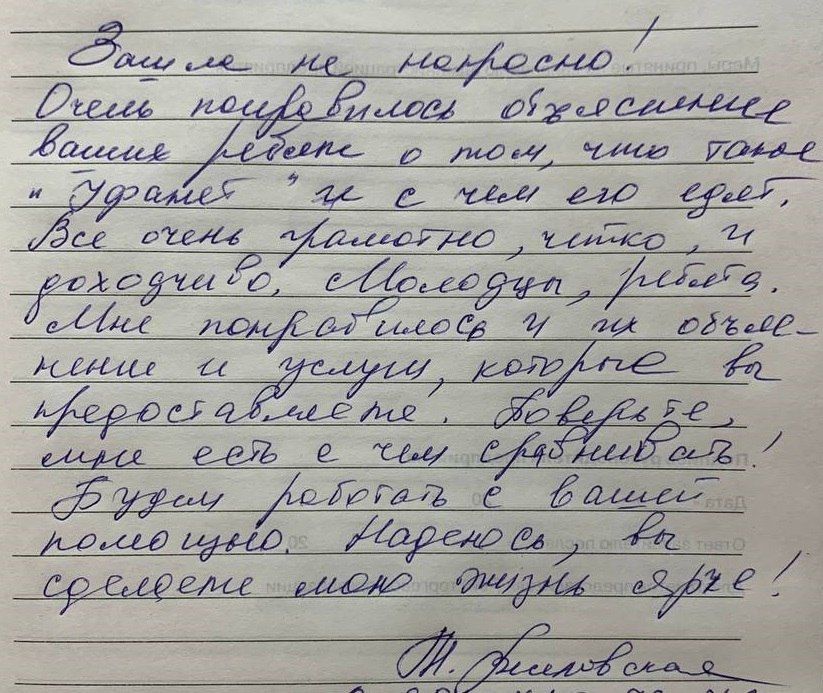 Зашла не напрасно!
Очень понравилось объяснение
ваших ребят о том, что такое
"Уфанет" и с чем его едят.
Все очень грамотно, четко, и
доходчиво. Молодцы, ребята.
Мне понравилось и их объяс-
нение и услуги, которые вы
предоставляете. Поверьте,
мне есть с чем сравнивать!
Будем работать с вашей
помощью. Надеюсь, вы
сделаете мою жизнь ярче!
Т.